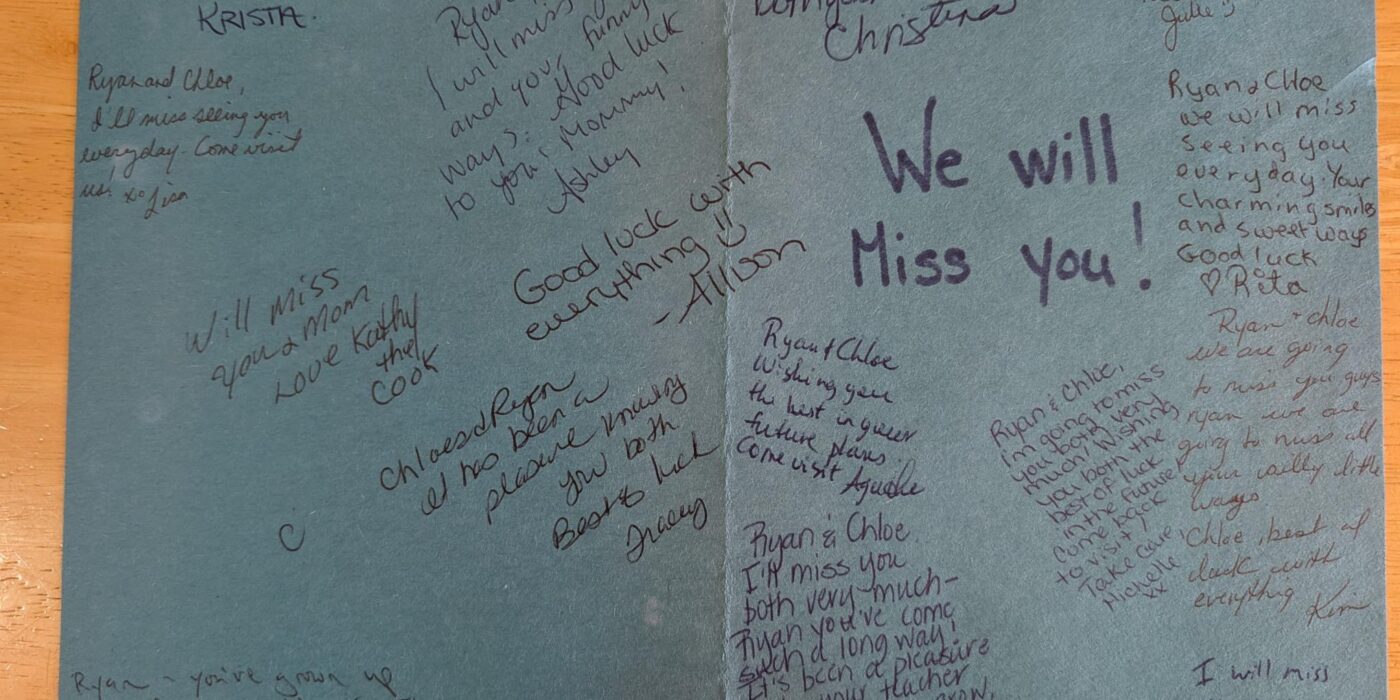 KRISTA.
Ryan and Chloe,
I'll miss seeing you
everyday - Come visit
us! xo Lisa
Ryan
I will miss
and your funny
ways. Good luck
to you & Mommy!
Ashley
Will miss
you & Mom
Love Kathy
the
Cook
Good luck with
everything!!
- Allison
Chloe and Ryan
it has been a
pleasure knowing
you both
Best of luck
Tracey
C
Ryan - you've grown up
Christina
Julie
We will
Miss you!
Ryan & Chloe
we will miss
seeing you
everyday. Your
charming smile
and sweet ways
Good luck
♡ Rita
Ryan + Chloe
Wishing you
the best in your
future plans.
Come visit
Ryan & Chloe,
I'm going to miss
you both very
much! Wishing
you both the
best of luck
in the future
Come back
to visit!
Take care,
Michelle
xx
Ryan + chloe
we are going
to miss you guys
ryan we are
going to miss all
your silly little
ways
Chloe, best of
luck with
everything
Kim
Ryan & Chloe.
I'll miss you
both very-much-
Ryan you've come
such a long way!
It's been a pleasure
your teacher
grow,
I will miss